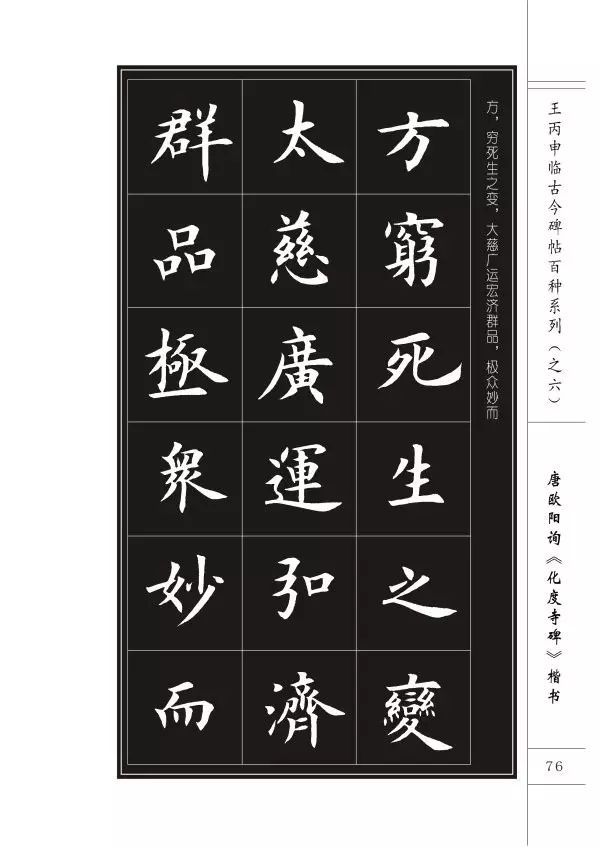 王丙申临古今碑帖百种系列（之六）
唐欧阳询《化度寺碑》楷书
76
方，穷死生之变，大慈广运宏济群品，极众妙而
方窮死生之變
太慈廣運弘濟
群品極眾妙而